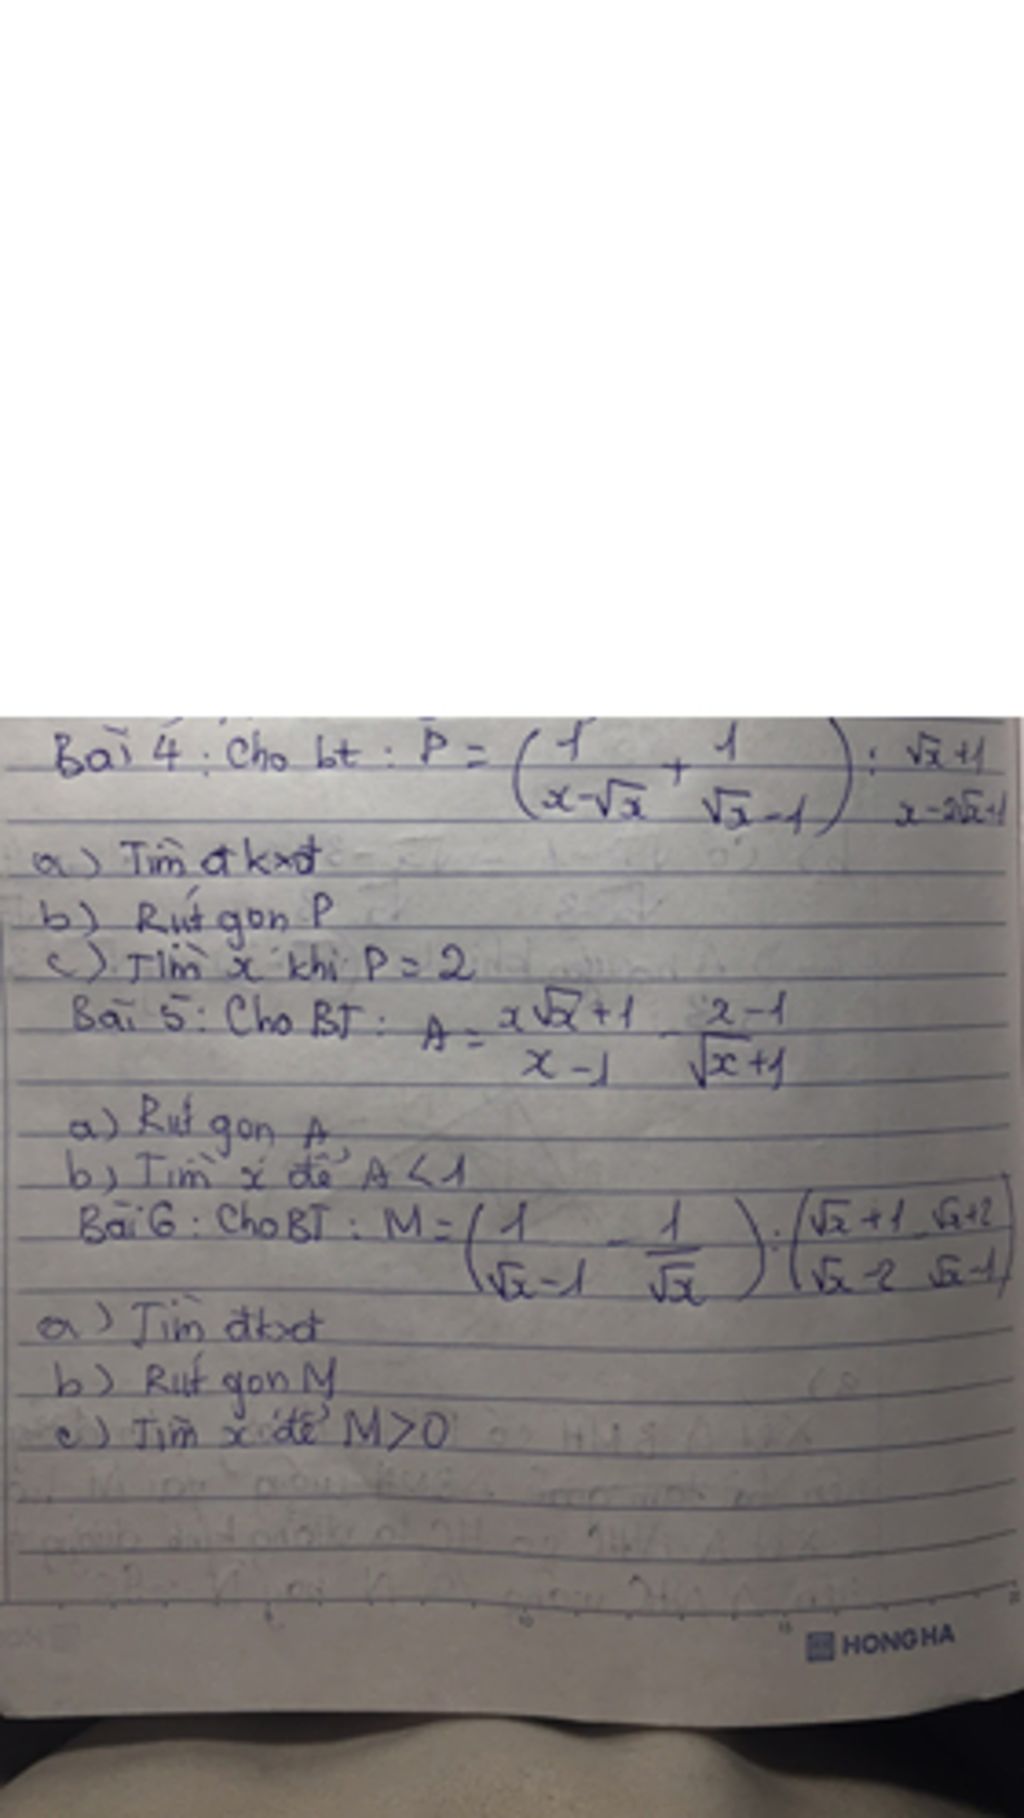 Bài 4 : Cho bt : P = (1/(x-√x) + 1/(√x-1)) : (√x+1)/(x-2√x+1)
a) Tìm đkxđ
b) Rút gọn P
c) Tìm x khi P = 2
Bài 5 : Cho BT : A = (x√x+1)/(x-1) - (x-1)/(√x+1)
a) Rút gọn A
b) Tìm x để A < 1
Bài 6 : Cho BT : M = (1/(√x-1) - 1/√x) : ((√x+1)/(√x-2) - (√x+2)/(√x-1))
a) Tìm đkxđ
b) Rút gọn M
c) Tìm x để M > 0
HONG HA